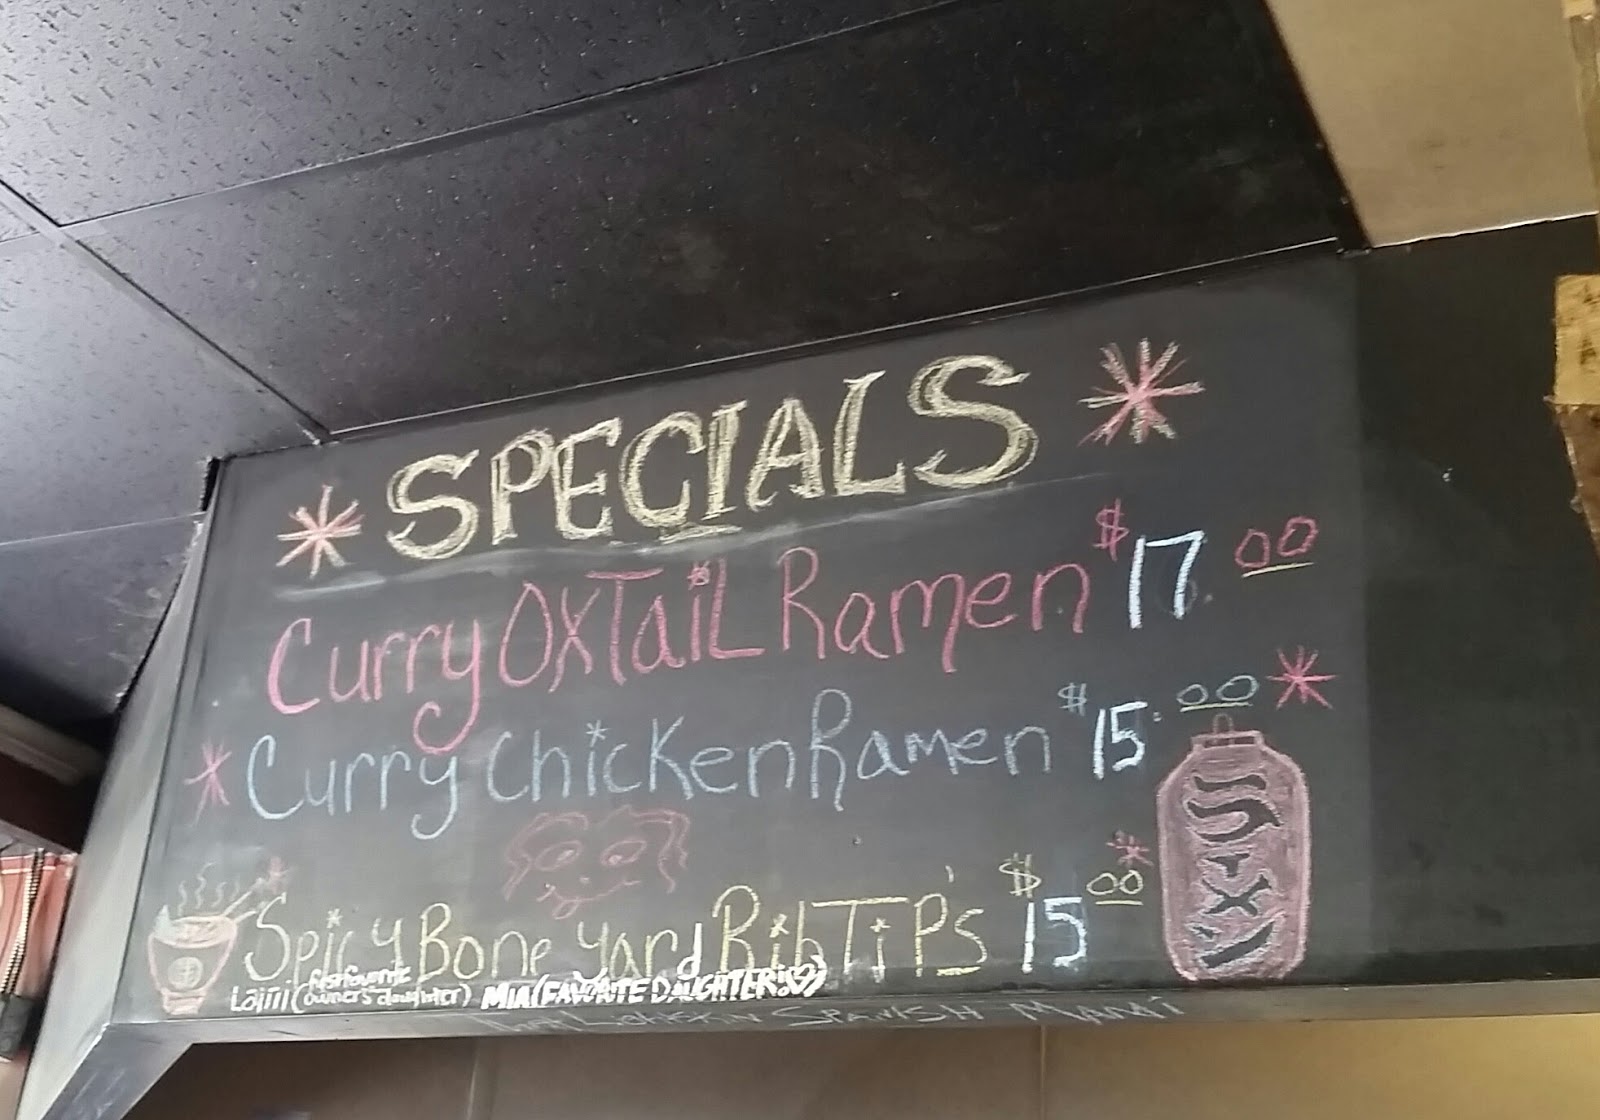 SPECIALS
Curry OXTaiL Ramen $17 00
Curry Chicken Ramen $15 00
ラーメン
Spicy Bone yard RibTiP's $15 00
(owner's daughter) MIA (FAVORITE DAUGHTER!!♡)
SPANISH MAMI